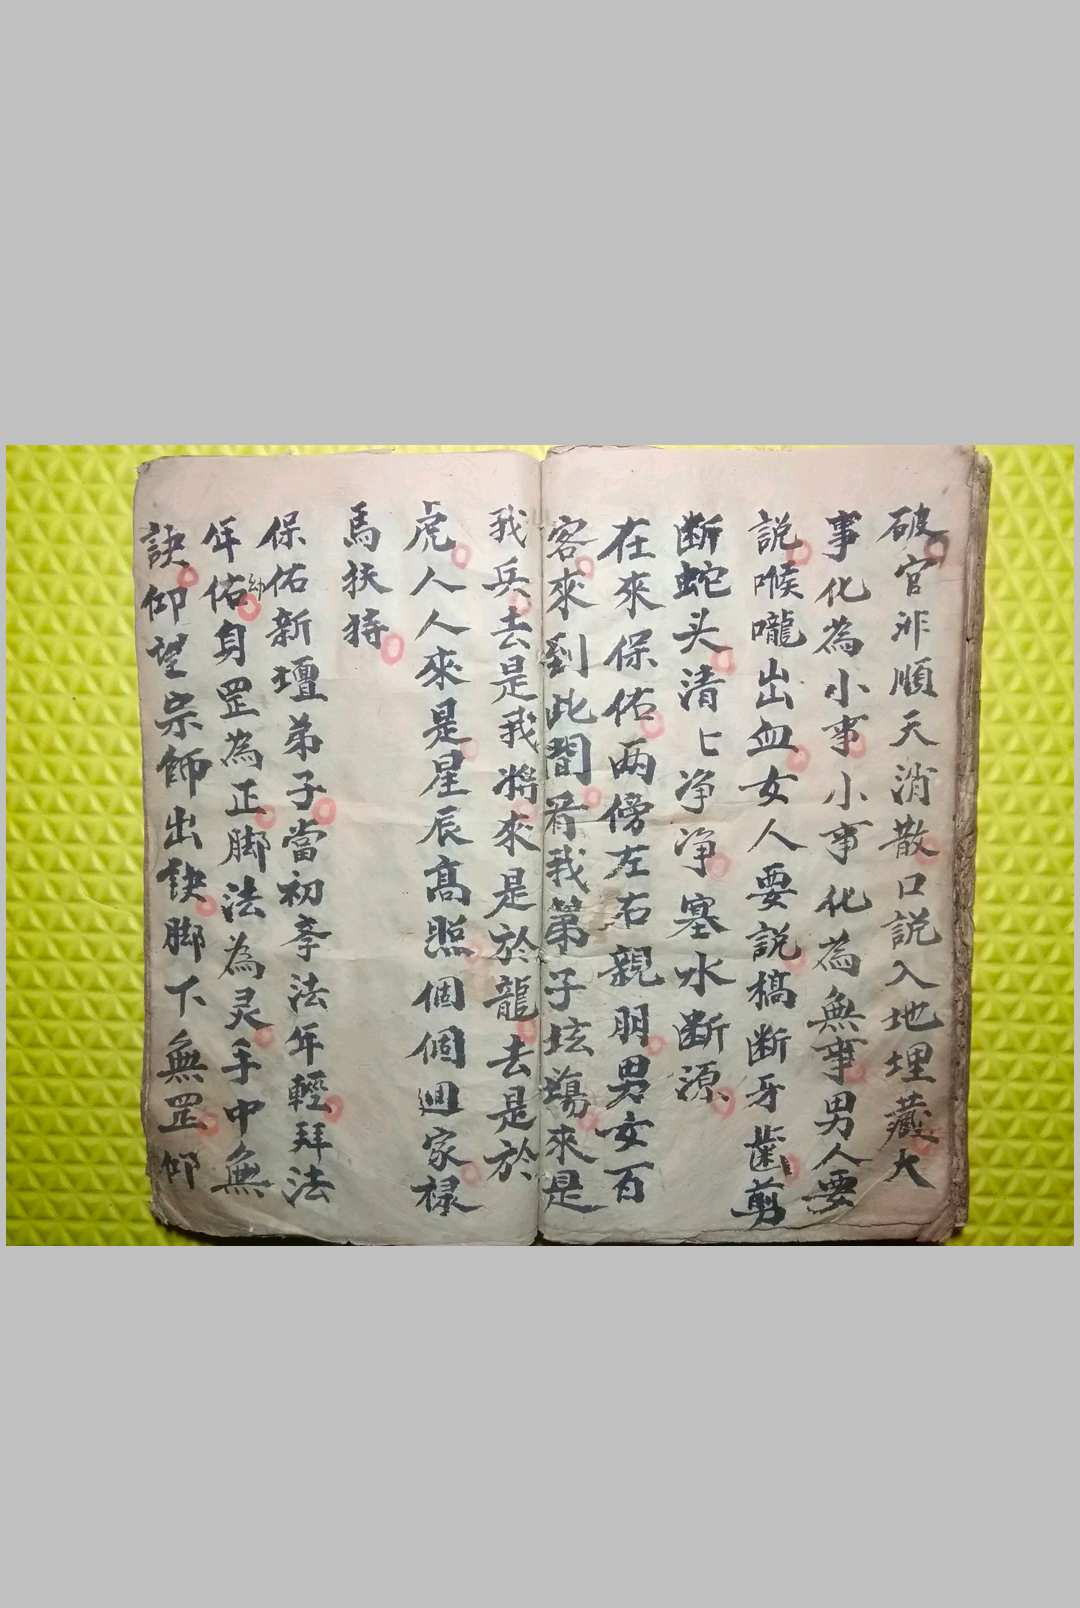 破官非順天消散口説入地埋藏大
事化為小事小事化為無事男人要
説喉嚨出血女人要説槁断牙齒剪
断蛇头清〻净净塞水断源
在來保佑两傍左右親朋男女百
客來到此間肴我第子坛蕩來是
我兵去是我將來是於龍去是於
虎人人來是星辰髙照個個迴家禄
馬扶持
保佑新壇弟子當初李法年輕拜法
年幼佑身罡為正脚法為灵手中無
訣仰望宗師出鈌脚下無罡仰